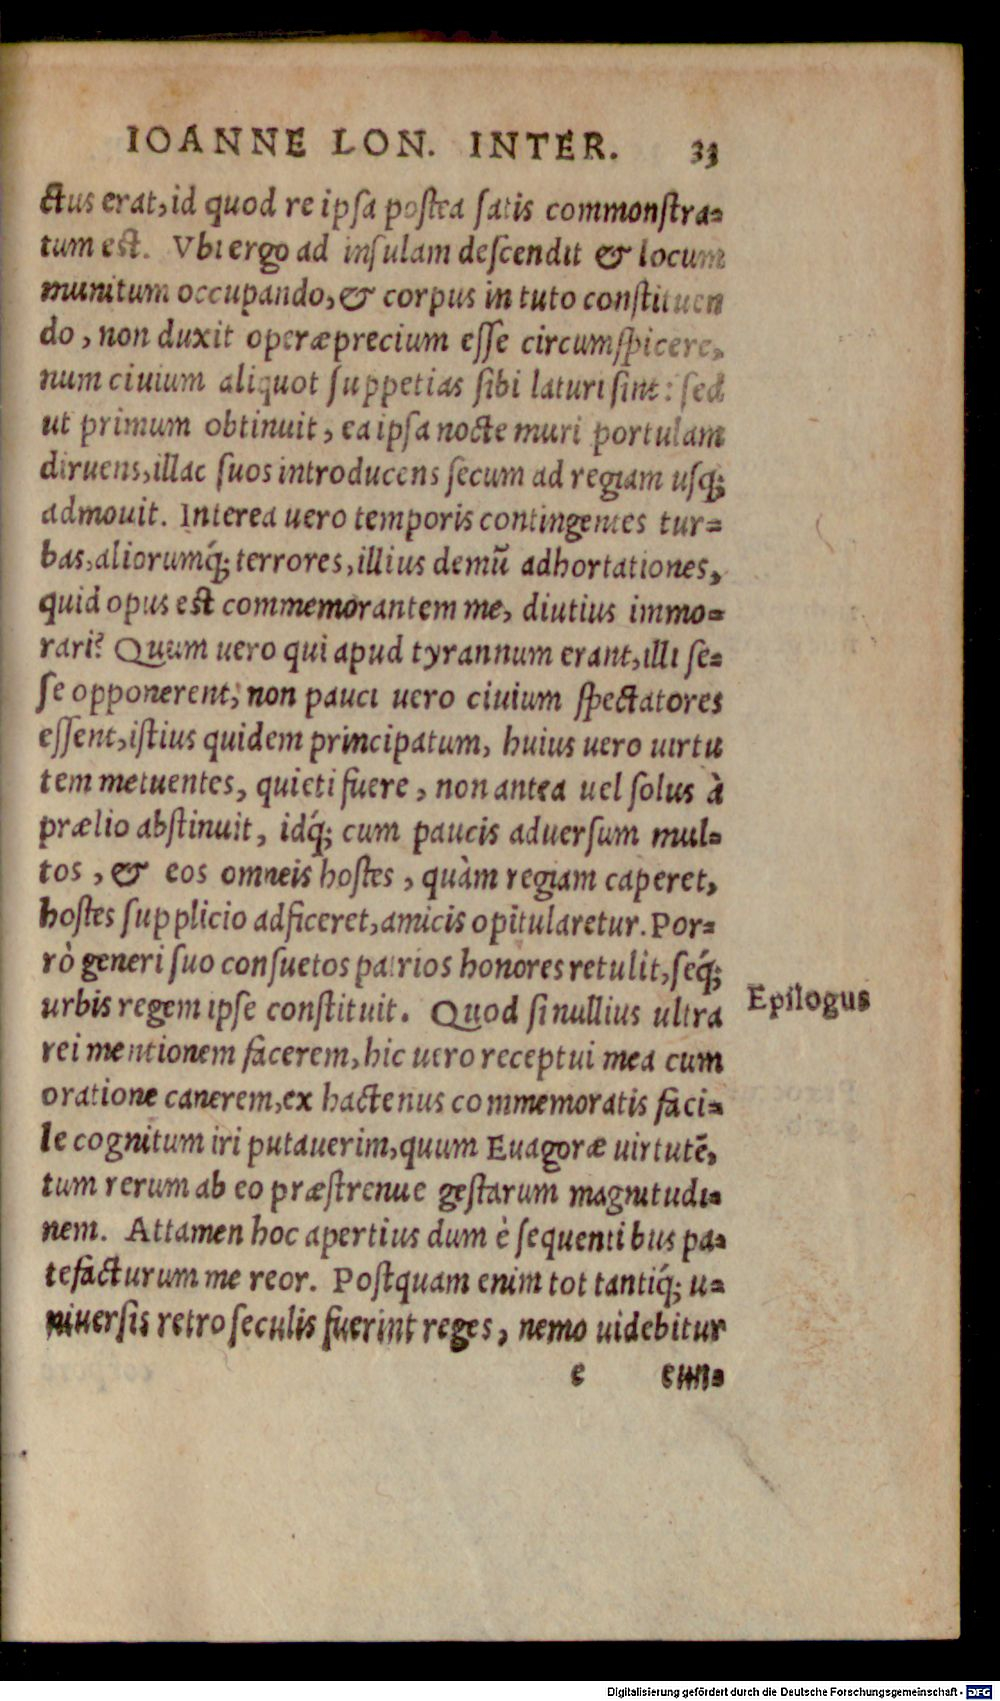 IOANNE LON. INTER. 33
ctus erat, id quod re ipſa poſtea ſatis commonſtra=
tum est. Vbi ergo ad inſulam deſcendit & locum
munitum occupando, & corpus in tuto conſtituen
do, non duxit operæprecium eſſe circumſpicere,
num ciuium aliquot ſuppetias ſibi laturi ſint: ſed
ut primum obtinuit, ea ipſa nocte muri portulam
diruens, illac ſuos introducens ſecum ad regiam uſq;
admouit. Interea uero temporis contingentes tur=
bas, aliorumq́; terrores, illius demũ adhortationes,
quid opus est commemorantem me, diutius immo=
rari? Quum uero qui apud tyrannum erant, illi ſe=
ſe opponerent, non pauci uero ciuium ſpectatores
eſſent, iſtius quidem principatum, huius uero uirtu
tem metuentes, quieti fuere, non antea uel ſolus à
prælio abſtinuit, idq́; cum paucis aduerſum mul=
tos, & eos omneis hoſtes, quàm regiam caperet,
hoſtes ſupplicio adficeret, amicis opitularetur. Por=
rò generi ſuo conſuetos patrios honores retulit, ſeq́;
urbis regem ipſe conſtituit. Quod ſi nullius ultra
Epilogus
rei mentionem facerem, hic uero receptui mea cum
oratione canerem, ex hactenus commemoratis faci=
le cognitum iri putauerim, quum Euagoræ uirtutẽ,
tum rerum ab eo præſtrenue geſtarum magnitudi=
nem. Attamen hoc apertius dum è ſequentibus pa=
tefacturum me reor. Poſtquam enim tot tantiq́; u=
niuerſis retro ſeculis fuerint reges, nemo uidebitur
e cun=
Digitalisierung gefördert durch die Deutsche Forschungsgemeinschaft - DFG